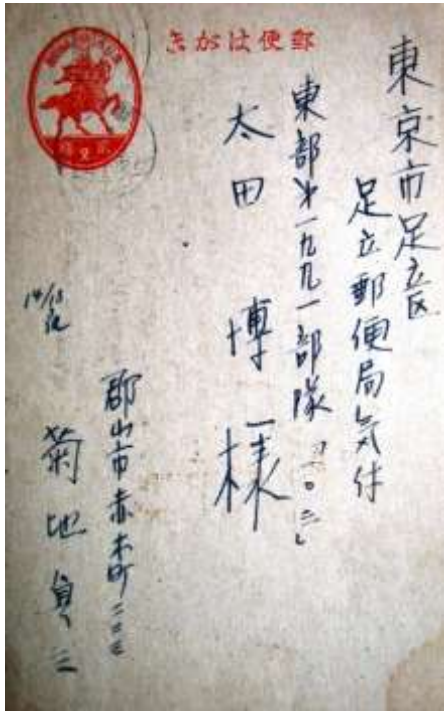 郵便はがき
東京市足立区
足立郵便局気付
東部第一九九一部隊「一〇二」
太田博様
郡山市赤木町二三三
菊地貞三